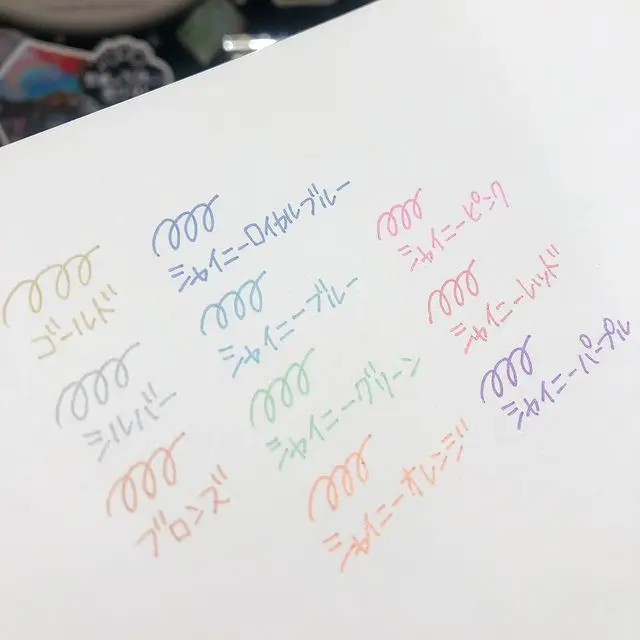 ゴールド
シルバー
ブロンズ
シャイニーロイヤルブルー
シャイニーブルー
シャイニーグリーン
シャイニーオレンジ
シャイニーピンク
シャイニーレッド
シャイニーパープル